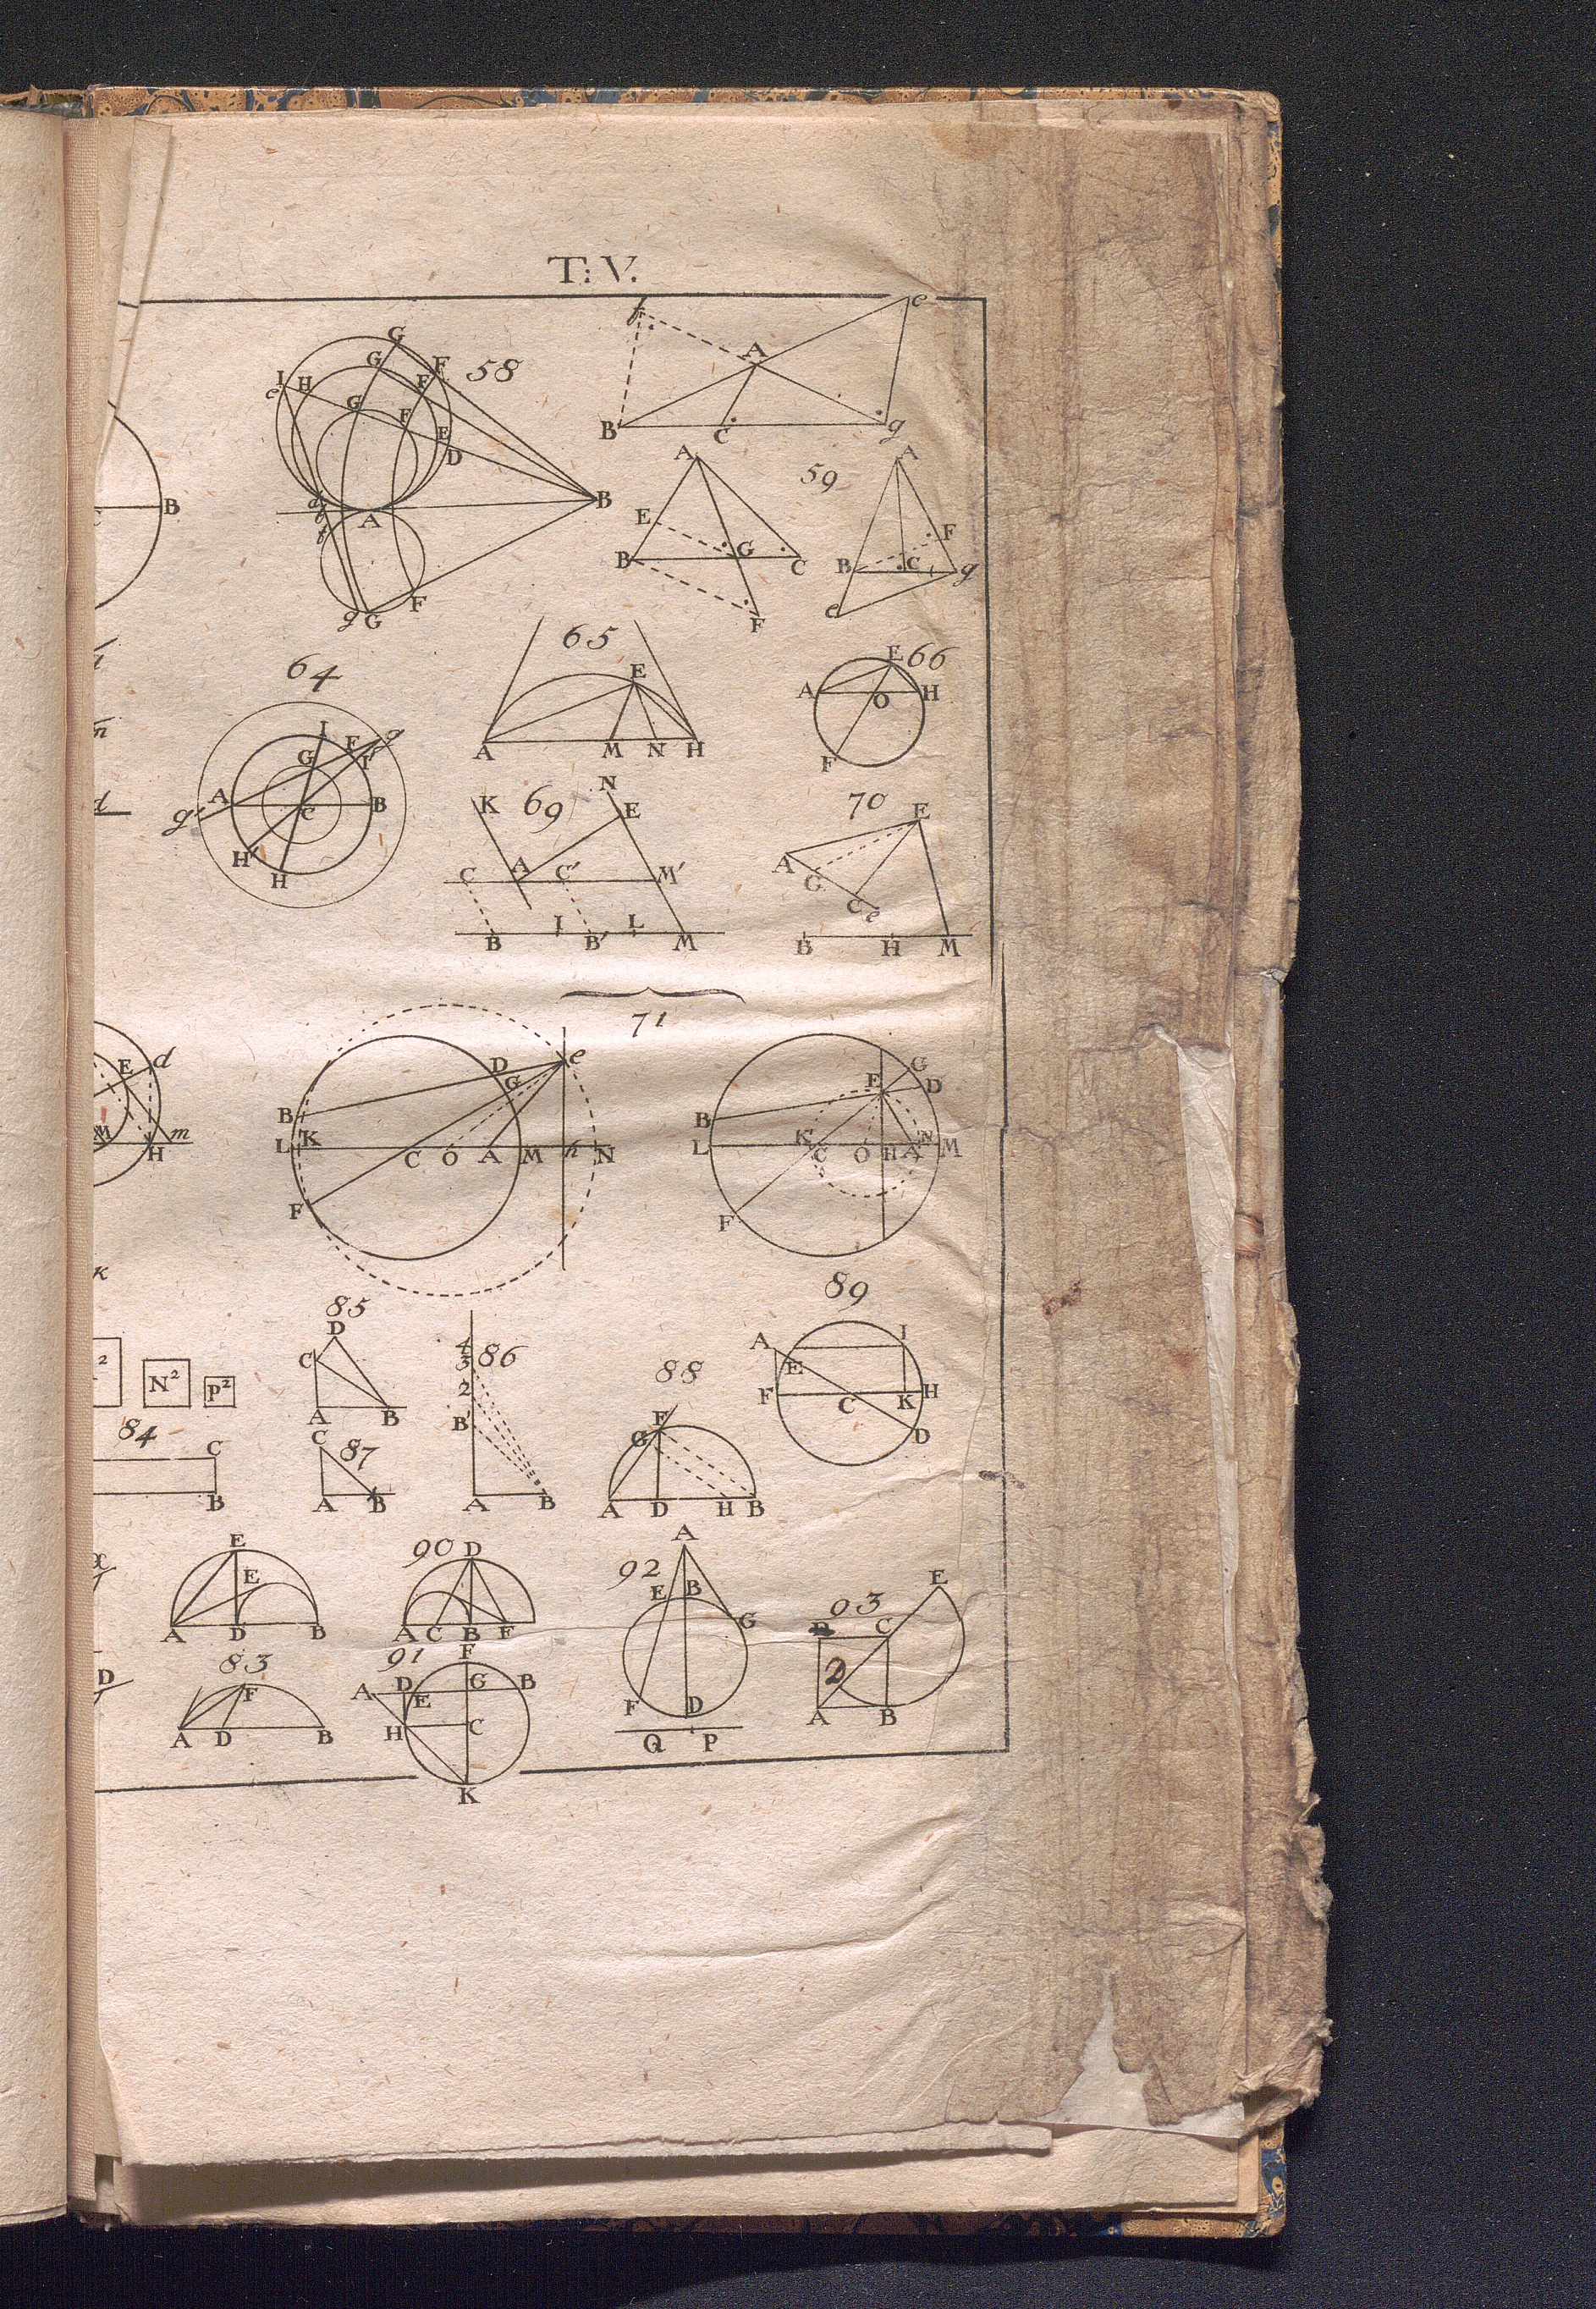 T: V.
58
G
G F
I H F
e G F
E
D
B
a
b A
f
g G F
f e
A
B C g
59
A
E
B G C
F
A
F
B C g
e
B
64
I F g
G f
I
A C B
g'
H'
H
65
E
A M N H
E 66
A O H
F
K 69 N
E
C A C' M'
I L
B B' M
70
E
A
G
C e
B H M
71
E d
M m
H
D e
G
B
L K C O A M h N
F
G
E D
B
L K C O H A N M
F
k
² N² P²
85
D
C
A B
4
3 86
2
B'
A B
84
C
B
C
87
A B
88
F
G
A D H B
89
A I
E
F C K H
D
E
E
A D B
90 D
A C B F
83
F
A D B
91 F
A D G B
E
H C
K
92 A
E B
G
F D
Q P
93 E
D C
2
A B
D